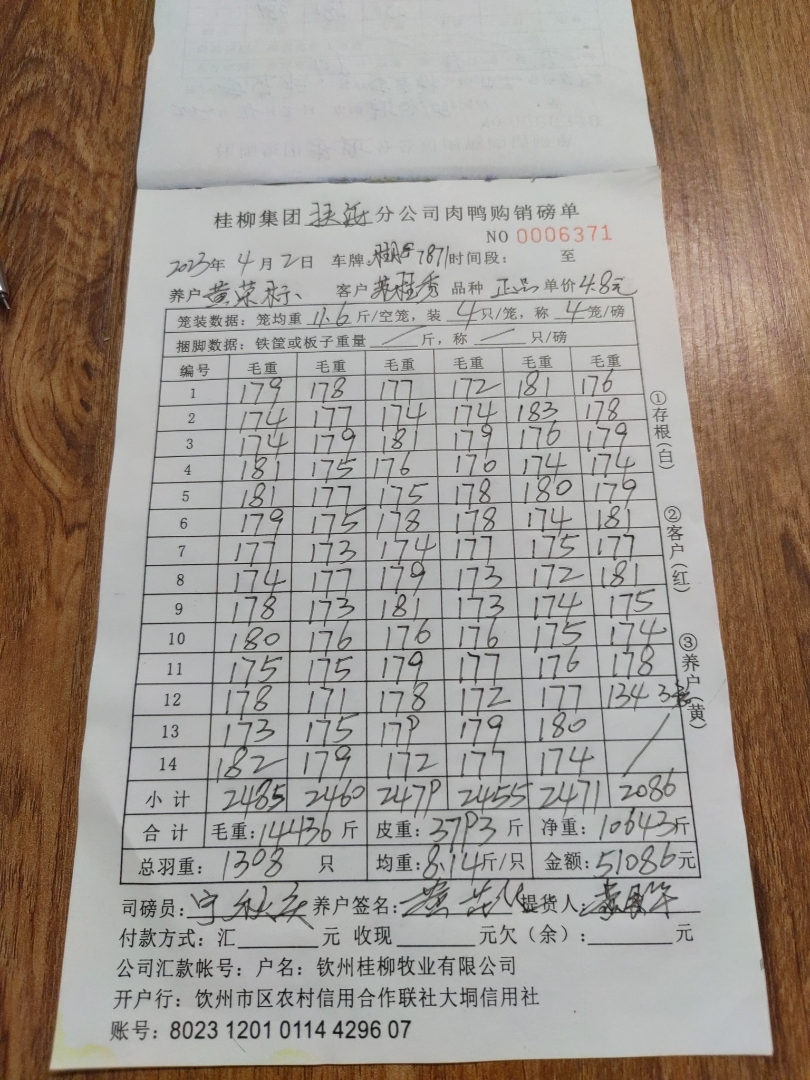 桂柳集团 扶绥 分公司肉鸭购销磅单
NO 0006371
2023年 4月2日 车牌: 7871 时间段: 至
养户 黄荣标 客户 秀 品种 正品 单价4.8元
笼装数据: 笼均重 11.6 斤/空笼, 装 4 只/笼, 称 4 笼/磅
捆脚数据: 铁筐或板子重量 / 斤, 称 / 只/磅
编号 毛重 毛重 毛重 毛重 毛重 毛重
1 179 178 177 172 181 176
2 174 177 174 174 183 178
3 174 179 181 179 176 179
4 181 175 176 170 174 174
5 181 177 175 178 180 179
6 179 175 178 178 174 181
7 177 173 174 177 175 177
8 174 177 179 173 172 181
9 178 173 181 173 174 175
10 180 176 176 176 175 174
11 175 175 179 177 176 178
12 178 171 178 172 177 134 3笼
13 173 175 179 179 180 /
14 182 179 172 177 174 /
小计 2485 2460 2479 2455 2471 2086
合计 毛重: 14436 斤 皮重: 3793 斤 净重: 10643斤
总羽重: 1308 只 均重: 8.14斤/只 金额: 51086元
司磅员: 养户签名: 黄 提货人:
付款方式: 汇 元 收现 元欠(余): 元
公司汇款帐号: 户名: 钦州桂柳牧业有限公司
开户行: 饮州市区农村信用合作联社大垌信用社
账号: 8023 1201 0114 4296 07
①存根(白)
②客户(红)
③养户(黄)